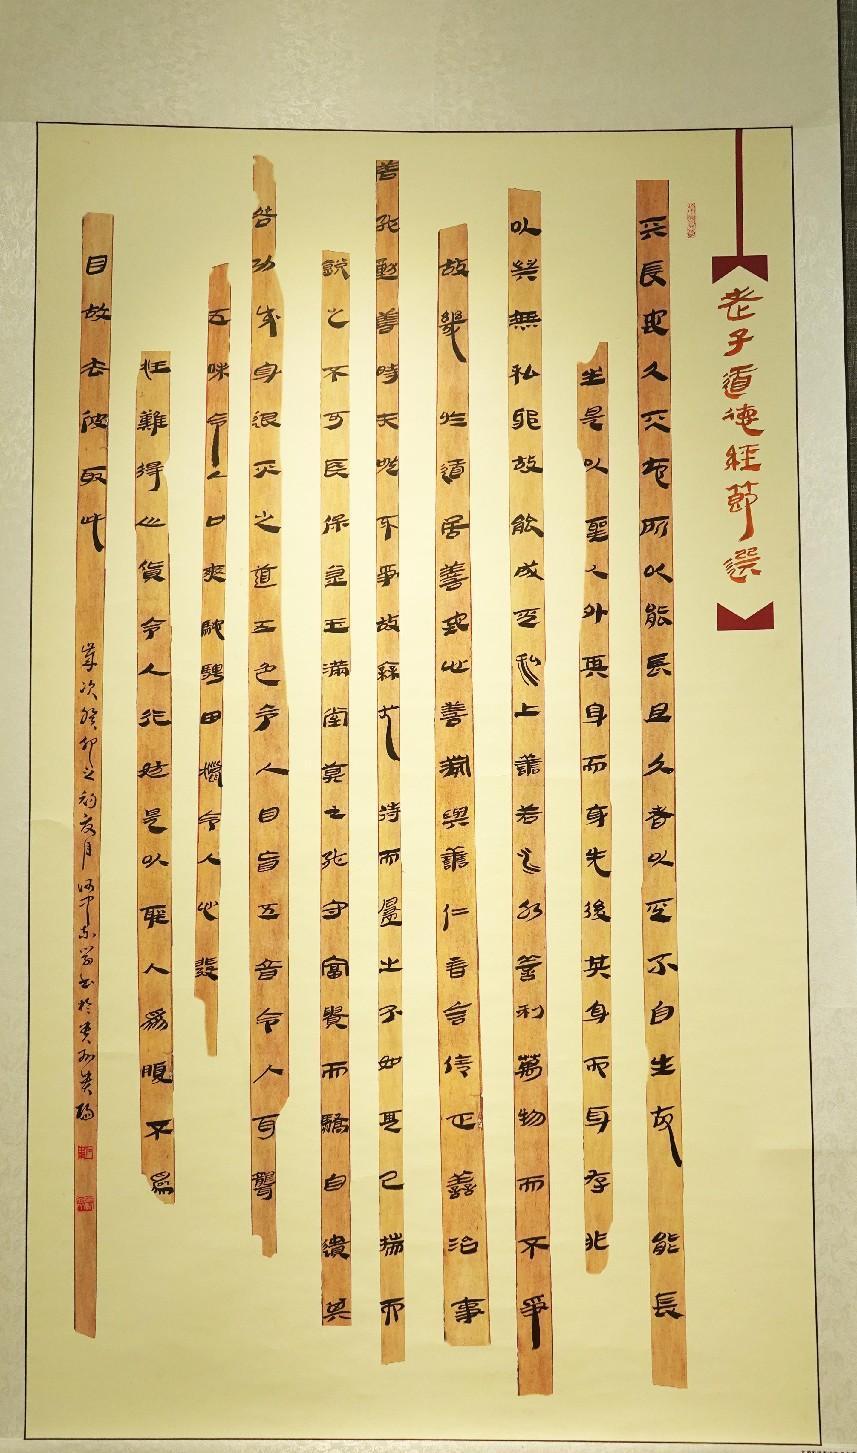 老子道德經節選
天長地久天地所以能長且久者以其不自生故能長
生是以聖人外其身而身先後其身而身存非
以其無私邪故能成其私上善若水水善利萬物而不爭
故幾於道居善地心善淵與善仁言善信正善治事
善能動善時夫唯不爭故無尤持而盈之不如其已揣而
銳之不可長保金玉滿堂莫之能守富貴而驕自遺其
咎功成身退天之道五色令人目盲五音令人耳聾
五味令人口爽馳騁田獵令人心發
狂難得之貨令人行妨是以聖人爲腹不爲
目故去彼取此
歲次癸卯之初夏月河中書於貴州貴陽